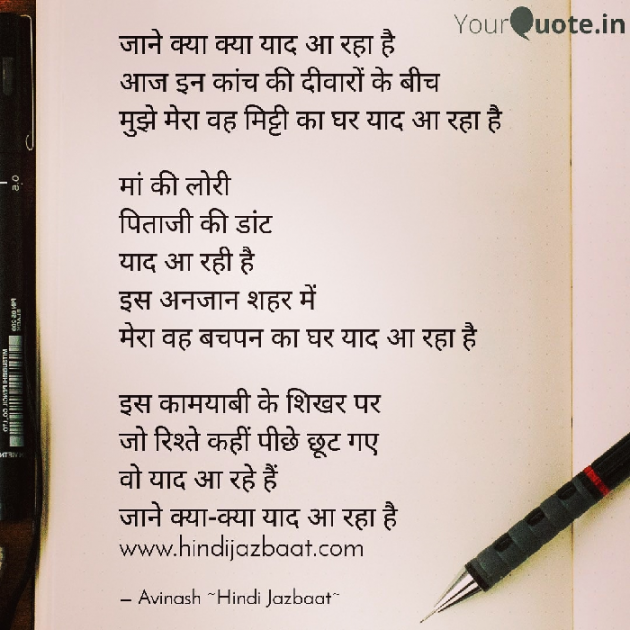 YourQuote.in
जाने क्या क्या याद आ रहा है
आज इन कांच की दीवारों के बीच
मुझे मेरा वह मिट्टी का घर याद आ रहा है
मां की लोरी
पिताजी की डांट
याद आ रही है
इस अनजान शहर में
मेरा वह बचपन का घर याद आ रहा है
इस कामयाबी के शिखर पर
जो रिश्ते कहीं पीछे छूट गए
वो याद आ रहे हैं
जाने क्या-क्या याद आ रहा है
www.hindijazbaat.com
— Avinash ~Hindi Jazbaat~